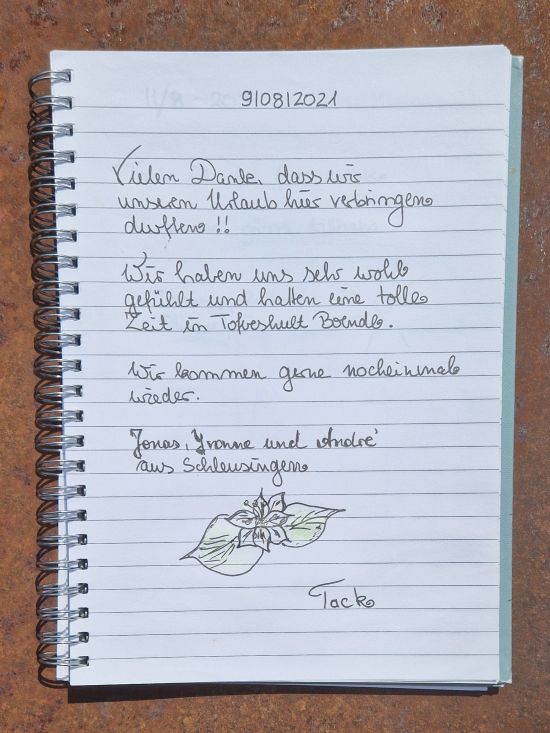 9/08/2021
Vielen Dank, dass wir
unseren Urlaub hier verbringen
durften !!
Wir haben uns sehr wohl
gefühlt und hatten eine tolle
Zeit in Tofveshult Boende.
Wir kommen gerne nocheinmal
wieder.
Jonas, Yvonne und André
aus Schleusingen
Tack